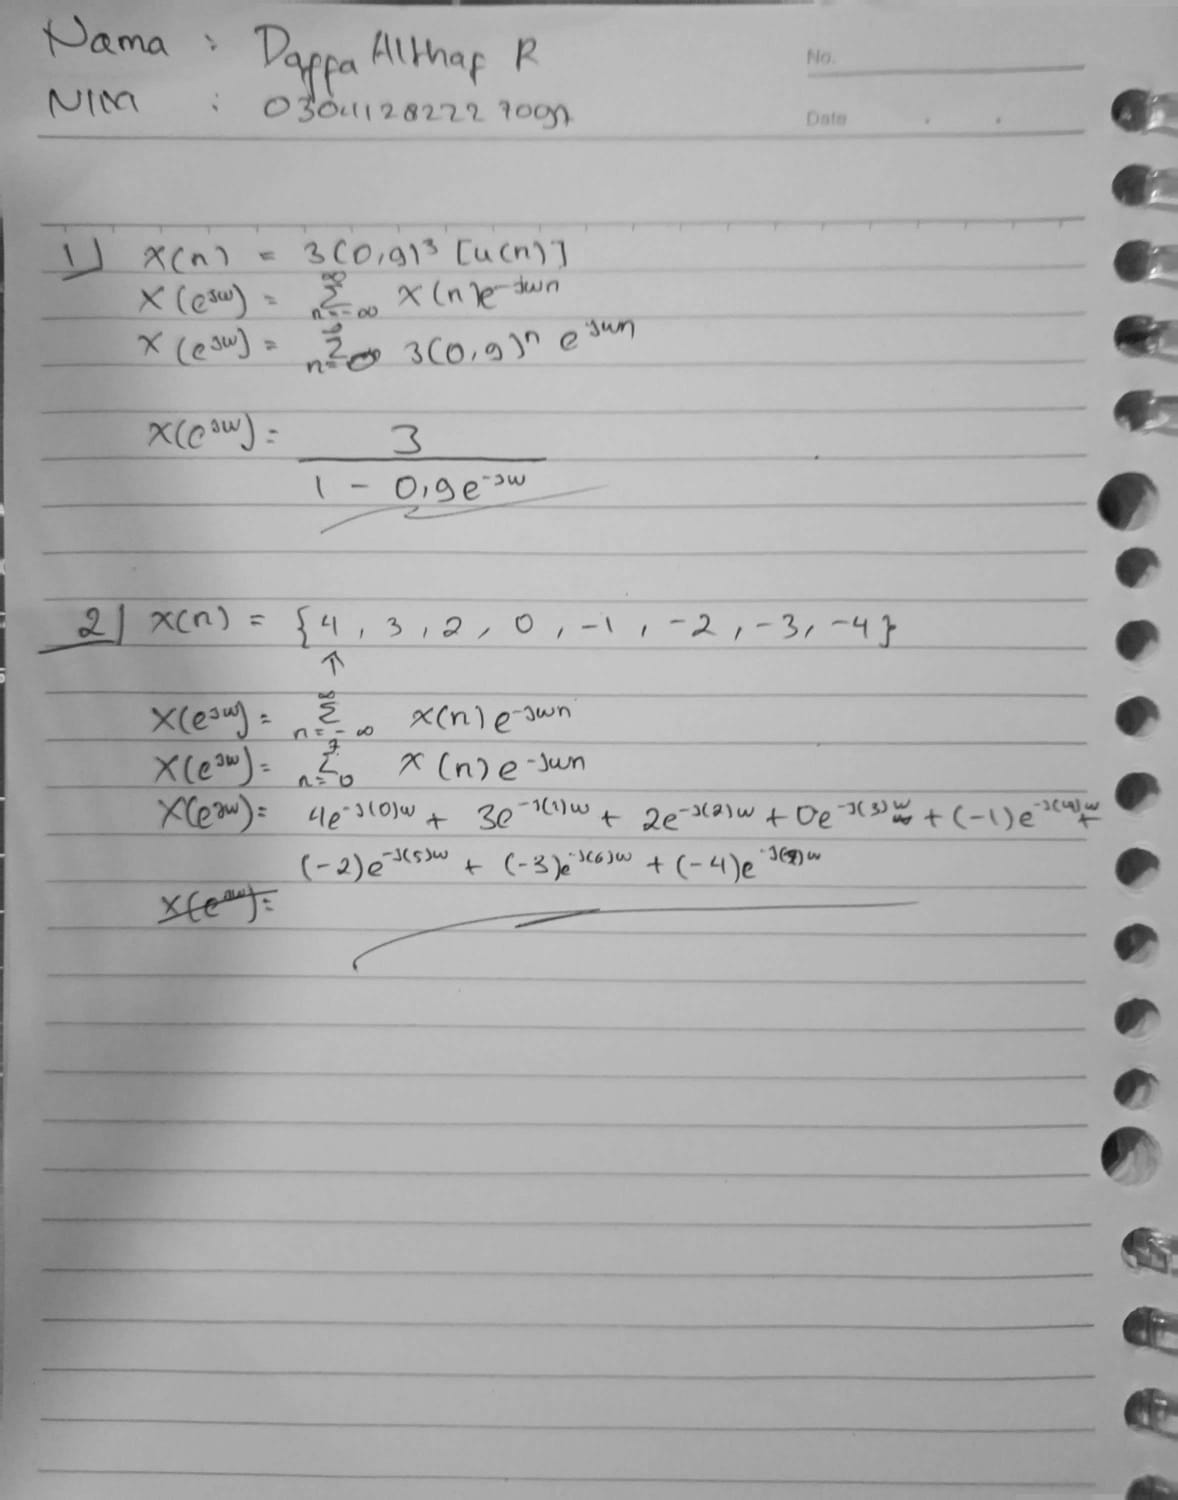 Nama : Daffa Althaf R
No.
NIM :
Date
1) x(n) = 3(0,9)³ [u(n)]
X(e^jw) = ∞ Σ n=-∞ x(n)e^-jwn
X(e^jw) = ∞ Σ n=0 3(0,9)^n e^jwn
X(e^jw) = 3
1 - 0,9e^-jw
2) x(n) = {4, 3, 2, 0, -1, -2, -3, -4}
↑
X(e^jw) = ∞ Σ n=-∞ x(n)e^-jwn
X(e^jw) = 7 Σ n=0 x(n)e^-jwn
X(e^jw) = 4e^-j(0)w + 3e^-j(1)w + 2e^-j(2)w + 0e^-j(3)w + (-1)e^-j(4)w +
(-2)e^-j(5)w + (-3)e^-j(6)w + (-4)e^-j(7)w
X(e^jw) =